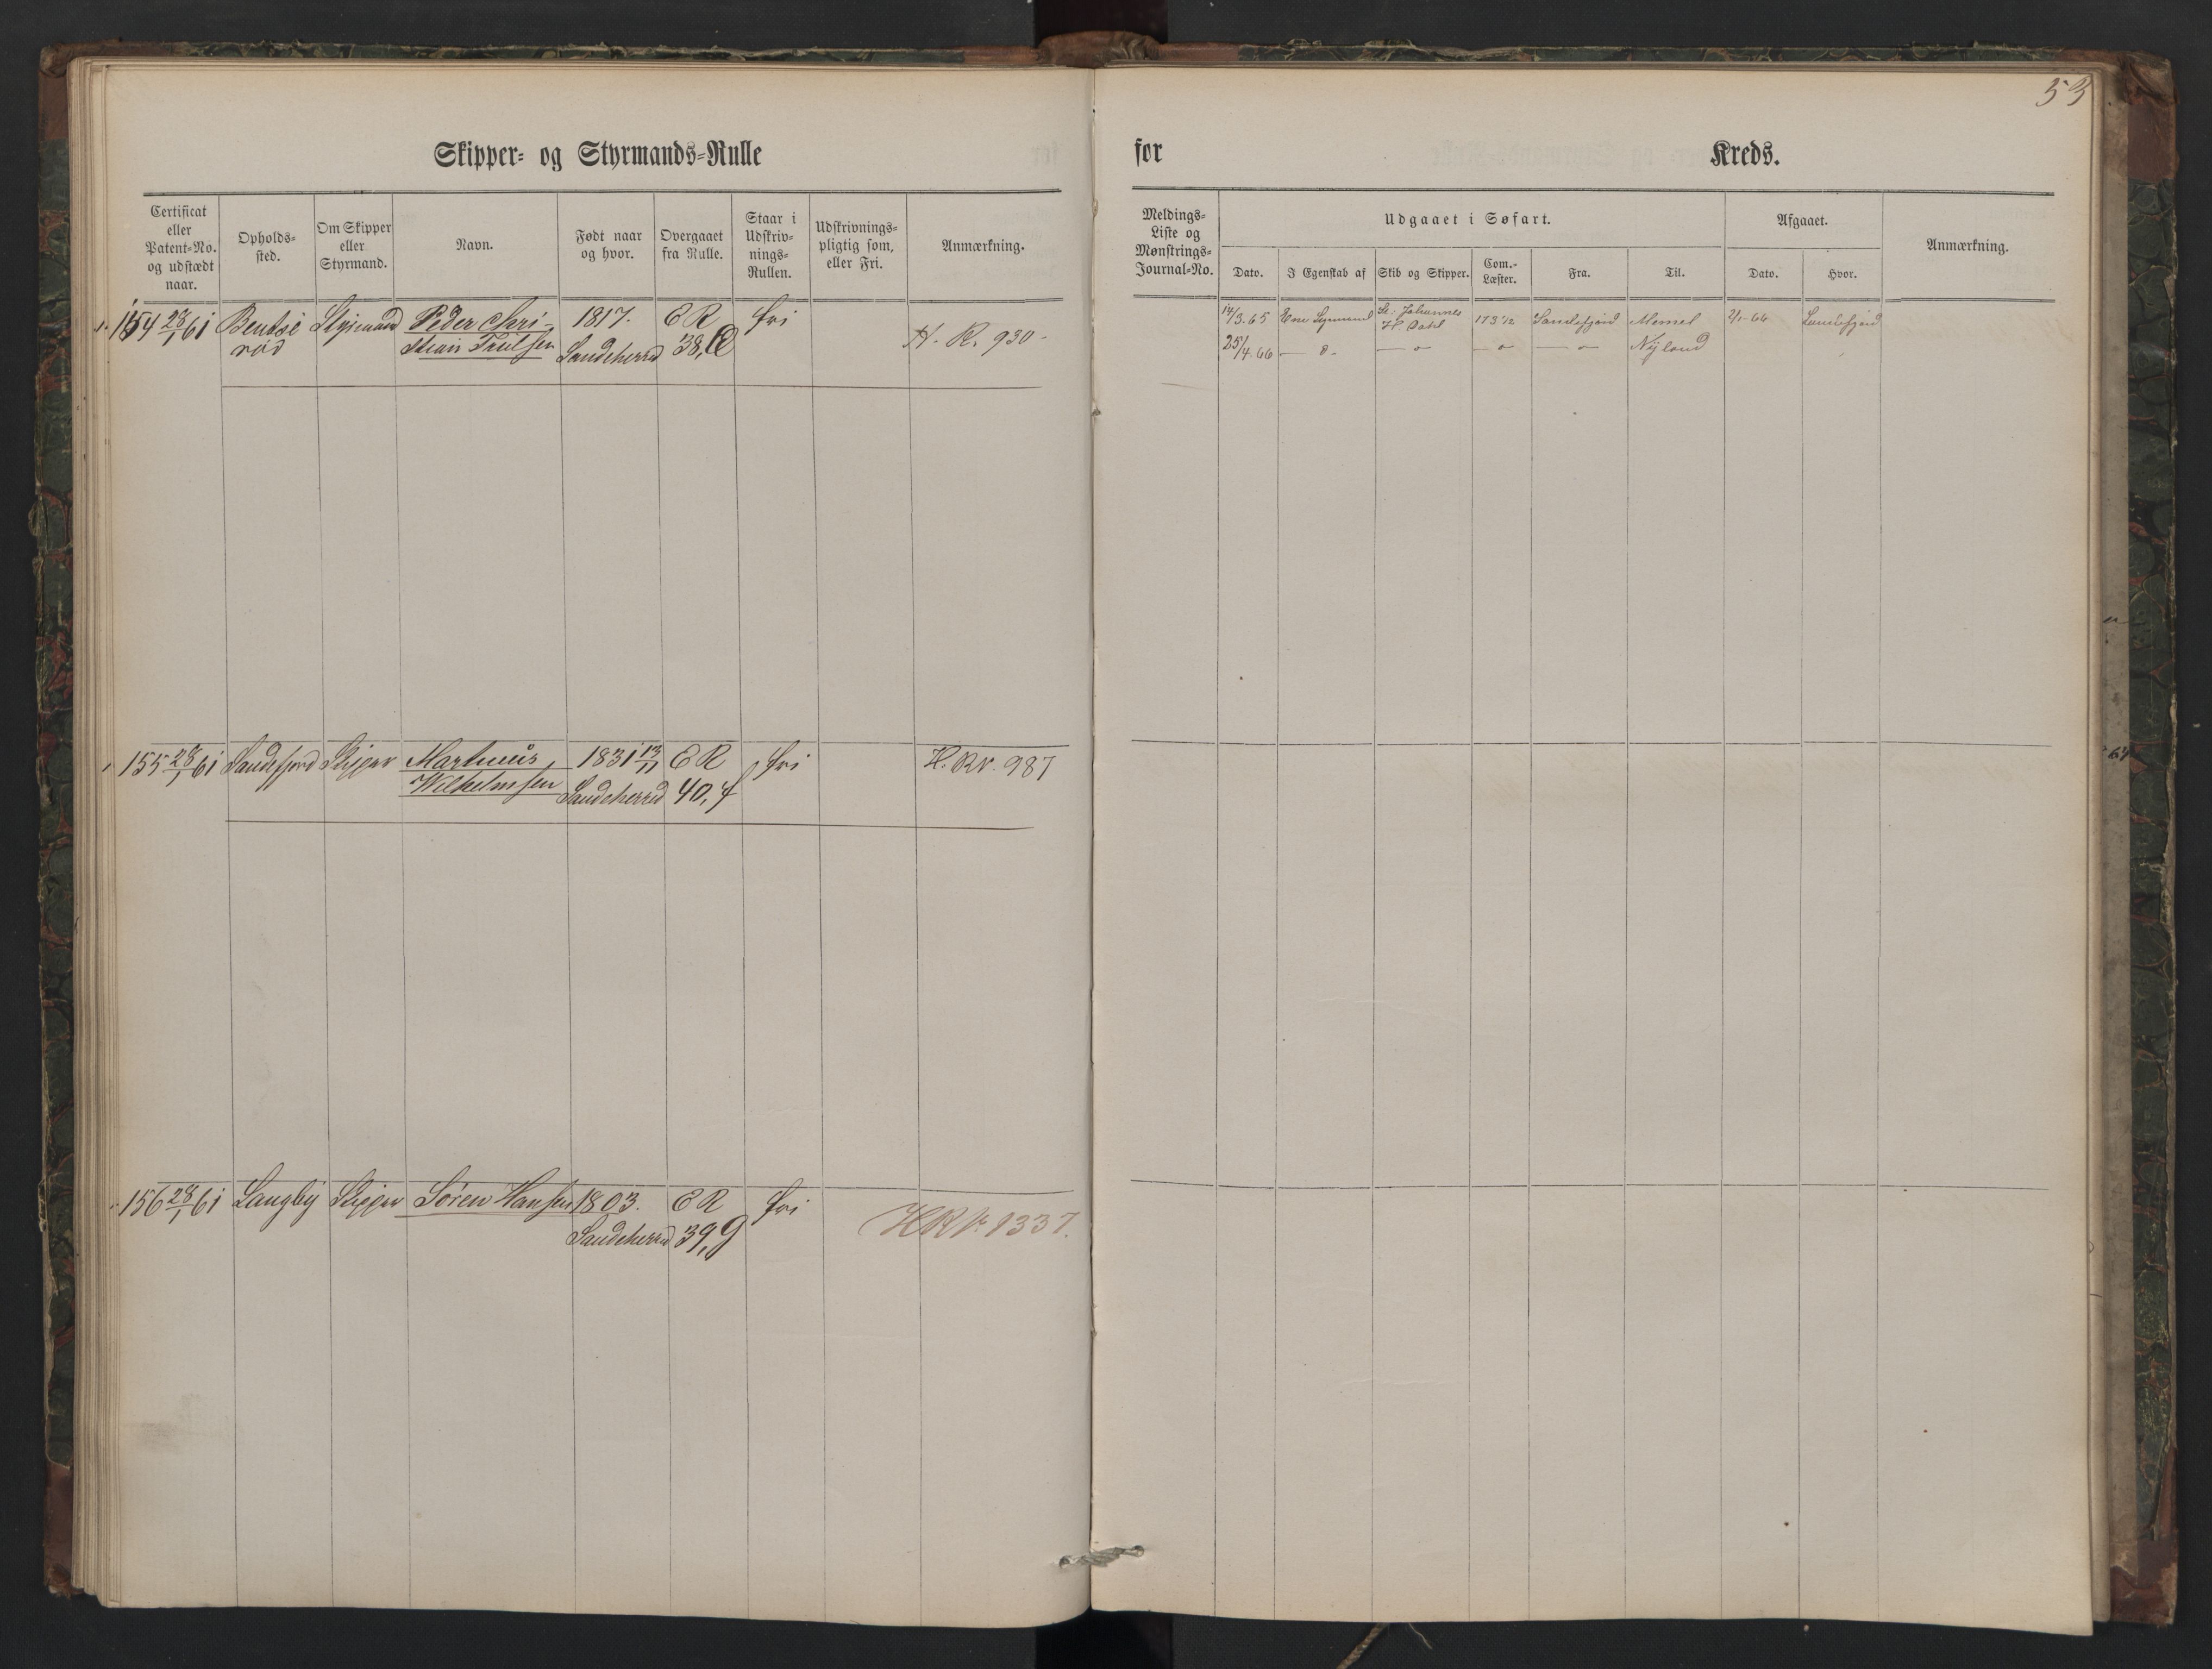 53
Skipper- og Styrmands-Rulle
for Kreds.
Certificat eller Patent-No. og udstædt naar.
Opholds-sted.
Om Skipper eller Styrmand.
Navn.
Født naar og hvor.
Overgaaet fra Rulle.
Staar i Udskriv-nings-Rullen.
Udskrivnings-pligtig som, eller Fri.
Anmærkning.
Meldings-Liste og Mønstrings-Journal-No.
Udgaaet i Søfart.
Dato.
I Egenskab af
Skib og Skipper.
Com.-Læster.
Fra.
Til.
Afgaaet.
Dato.
Hvor.
Anmærkning.
154 28/1 61 Bentse Styrmand Peder Chri- 1817. ER fri
rød stian Trulsen Sandeherred 38, H. R. 930
14/3.65 Johannes 173 1/2 Sandefjord Memel 2/1-66 Sandefjord
H. Dahl
25/4.66 — o — — o — — o — — o — Nyland
155 28/1 61 Sandefjord Skipper Martinius 1831 13/11 ER fri H. Rv. 987
Wilhelmsen Sandeherred 40, f
156 28/1 61 Langby Skipper Søren Hansen 1803. ER fri
Sandeherred 39, g HRv. 1337.